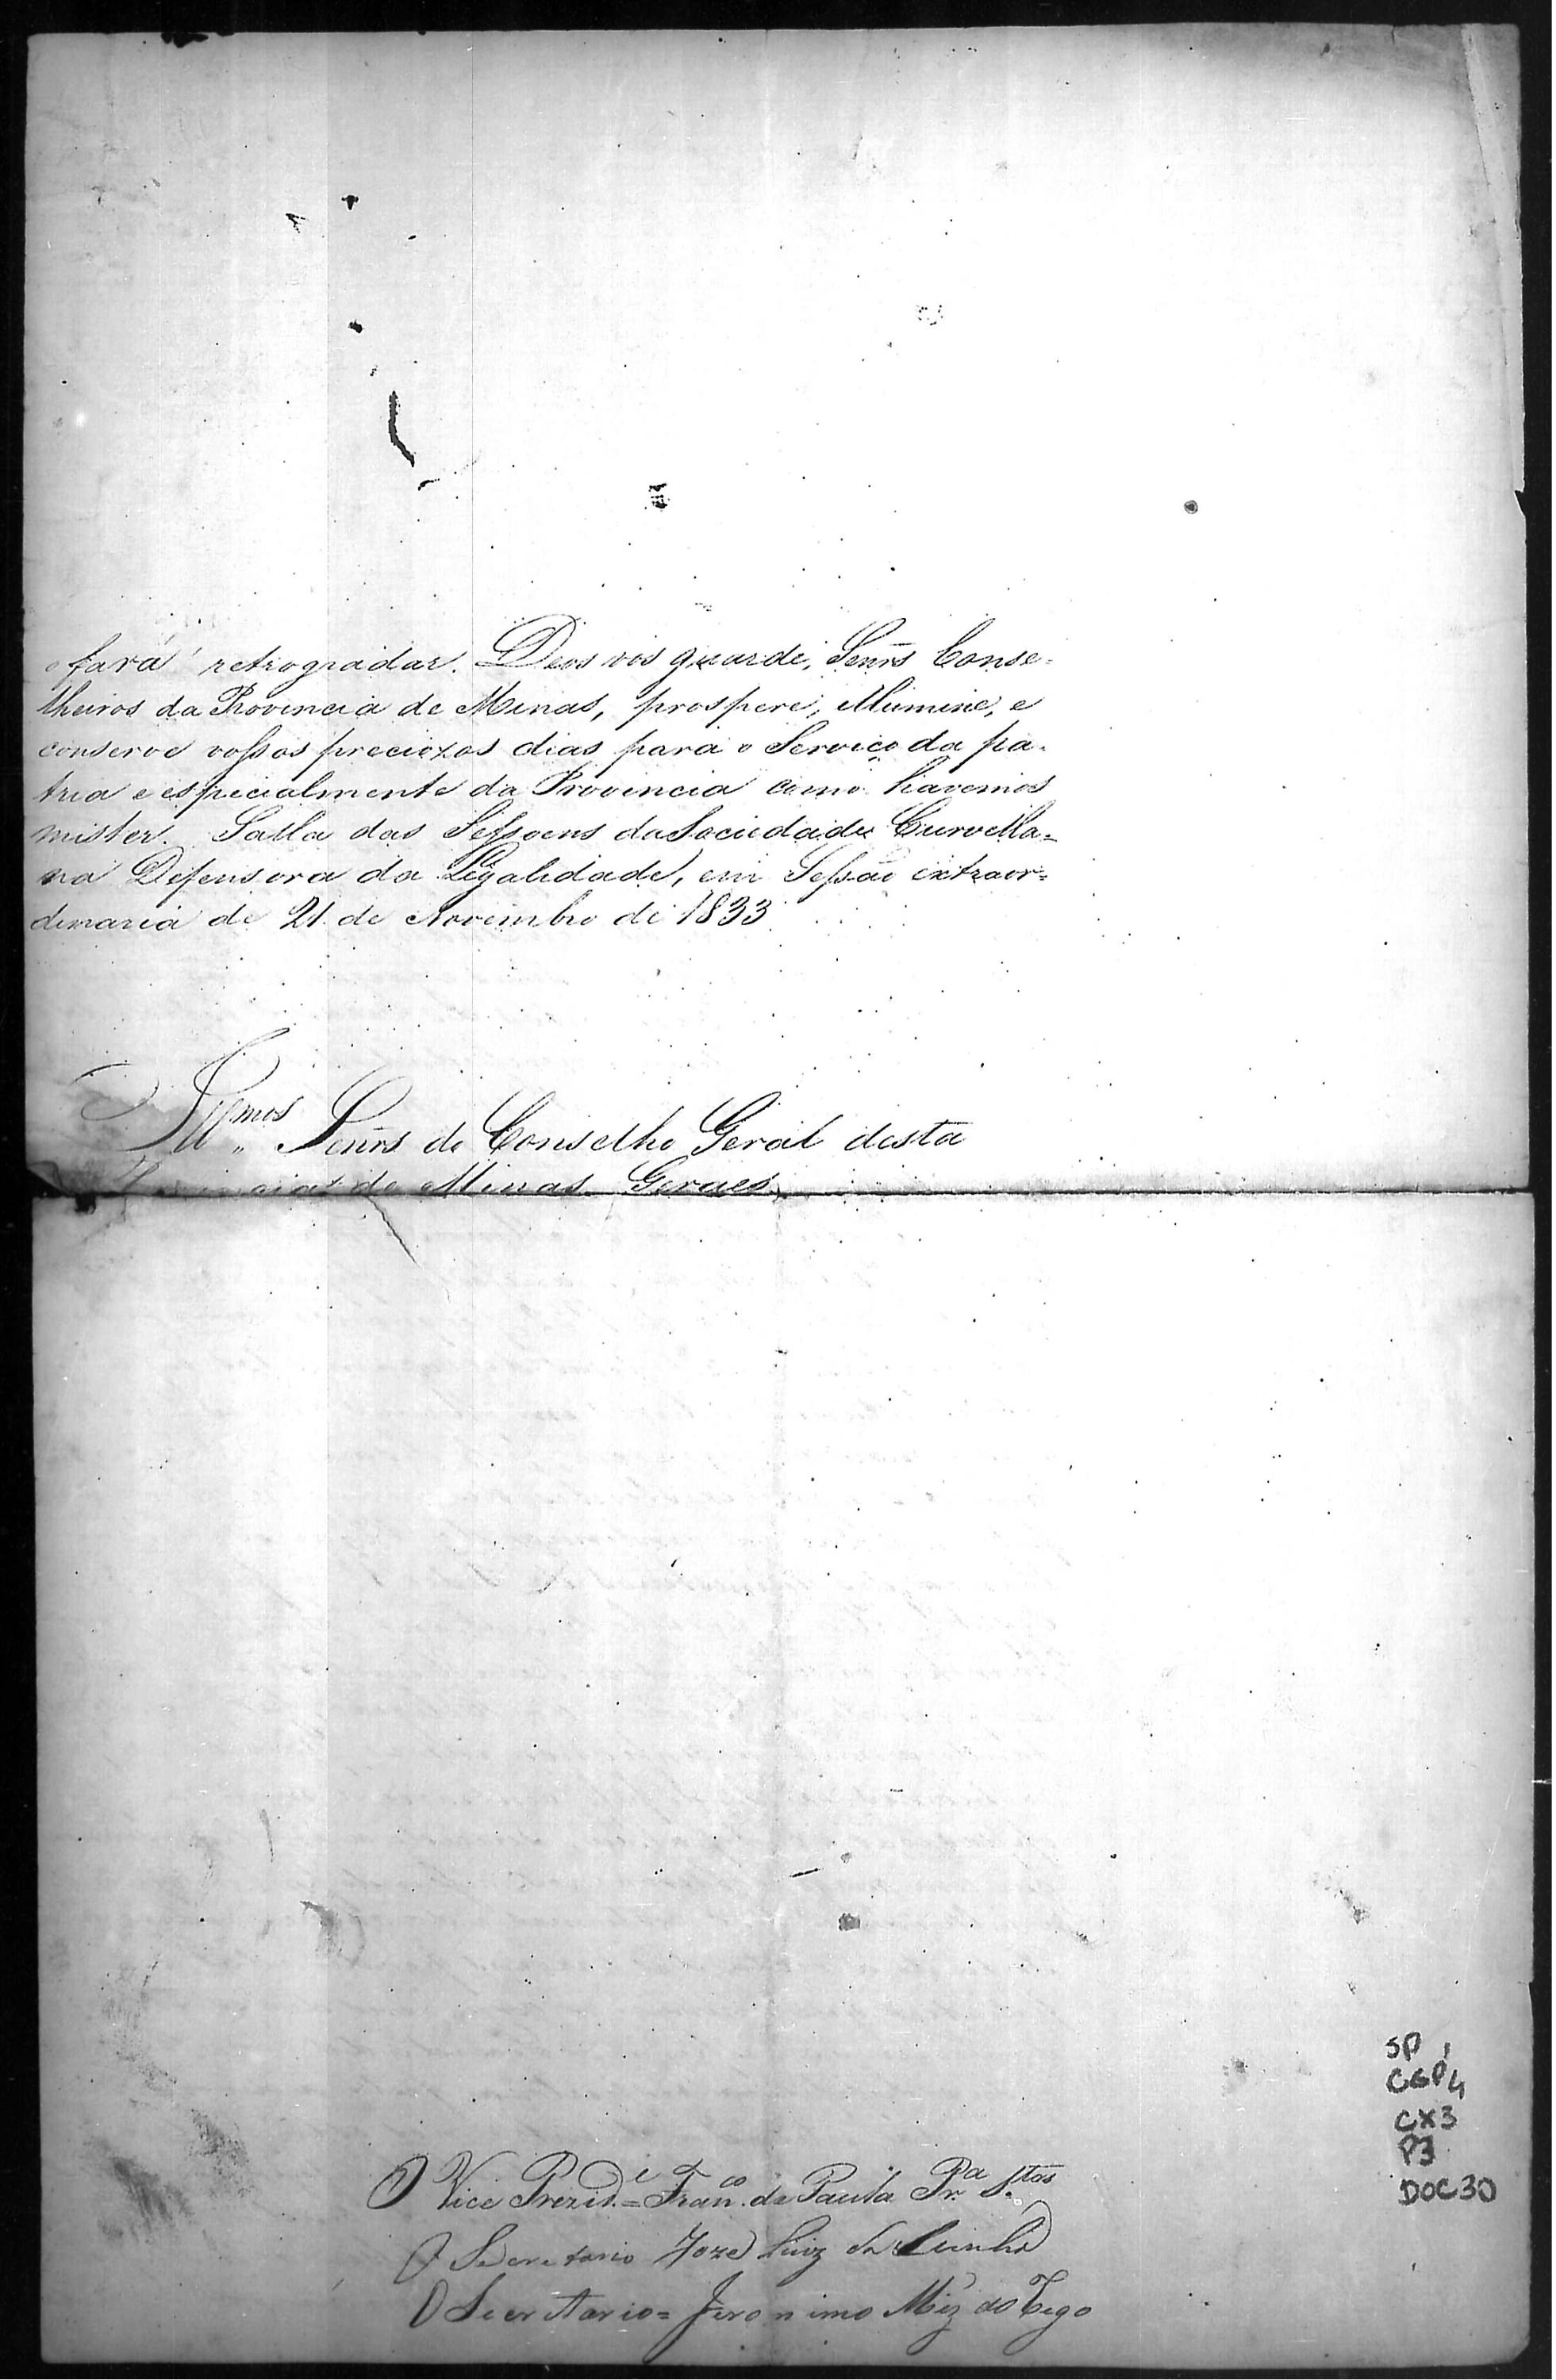 o fará retrogradar. Deos vos guarde, Senr̃s Conse=
lheiros da Provincia de Minas, prospere, illumine, e
conserve vossos preciozos dias para o Serviço da pa=
tria e especialmente da Provincia como havemos
mister. Salla das Sessoens da Sociedade Curvella=
na Defensora da Legalidade, em Sessão extraor=
dinaria de 21 de Novembro de 1833
Illmos Senr̃s do Conselho Geral desta
de Minas Geraes.
SP 1
CGP4
CX3
P3
DOC30
O Vice Prezid.e = Fran.co de Paula Pr.a S.tos
O Secretario Joze Luiz da Cunha
O Secretario = Jeronimo Miz do Rego